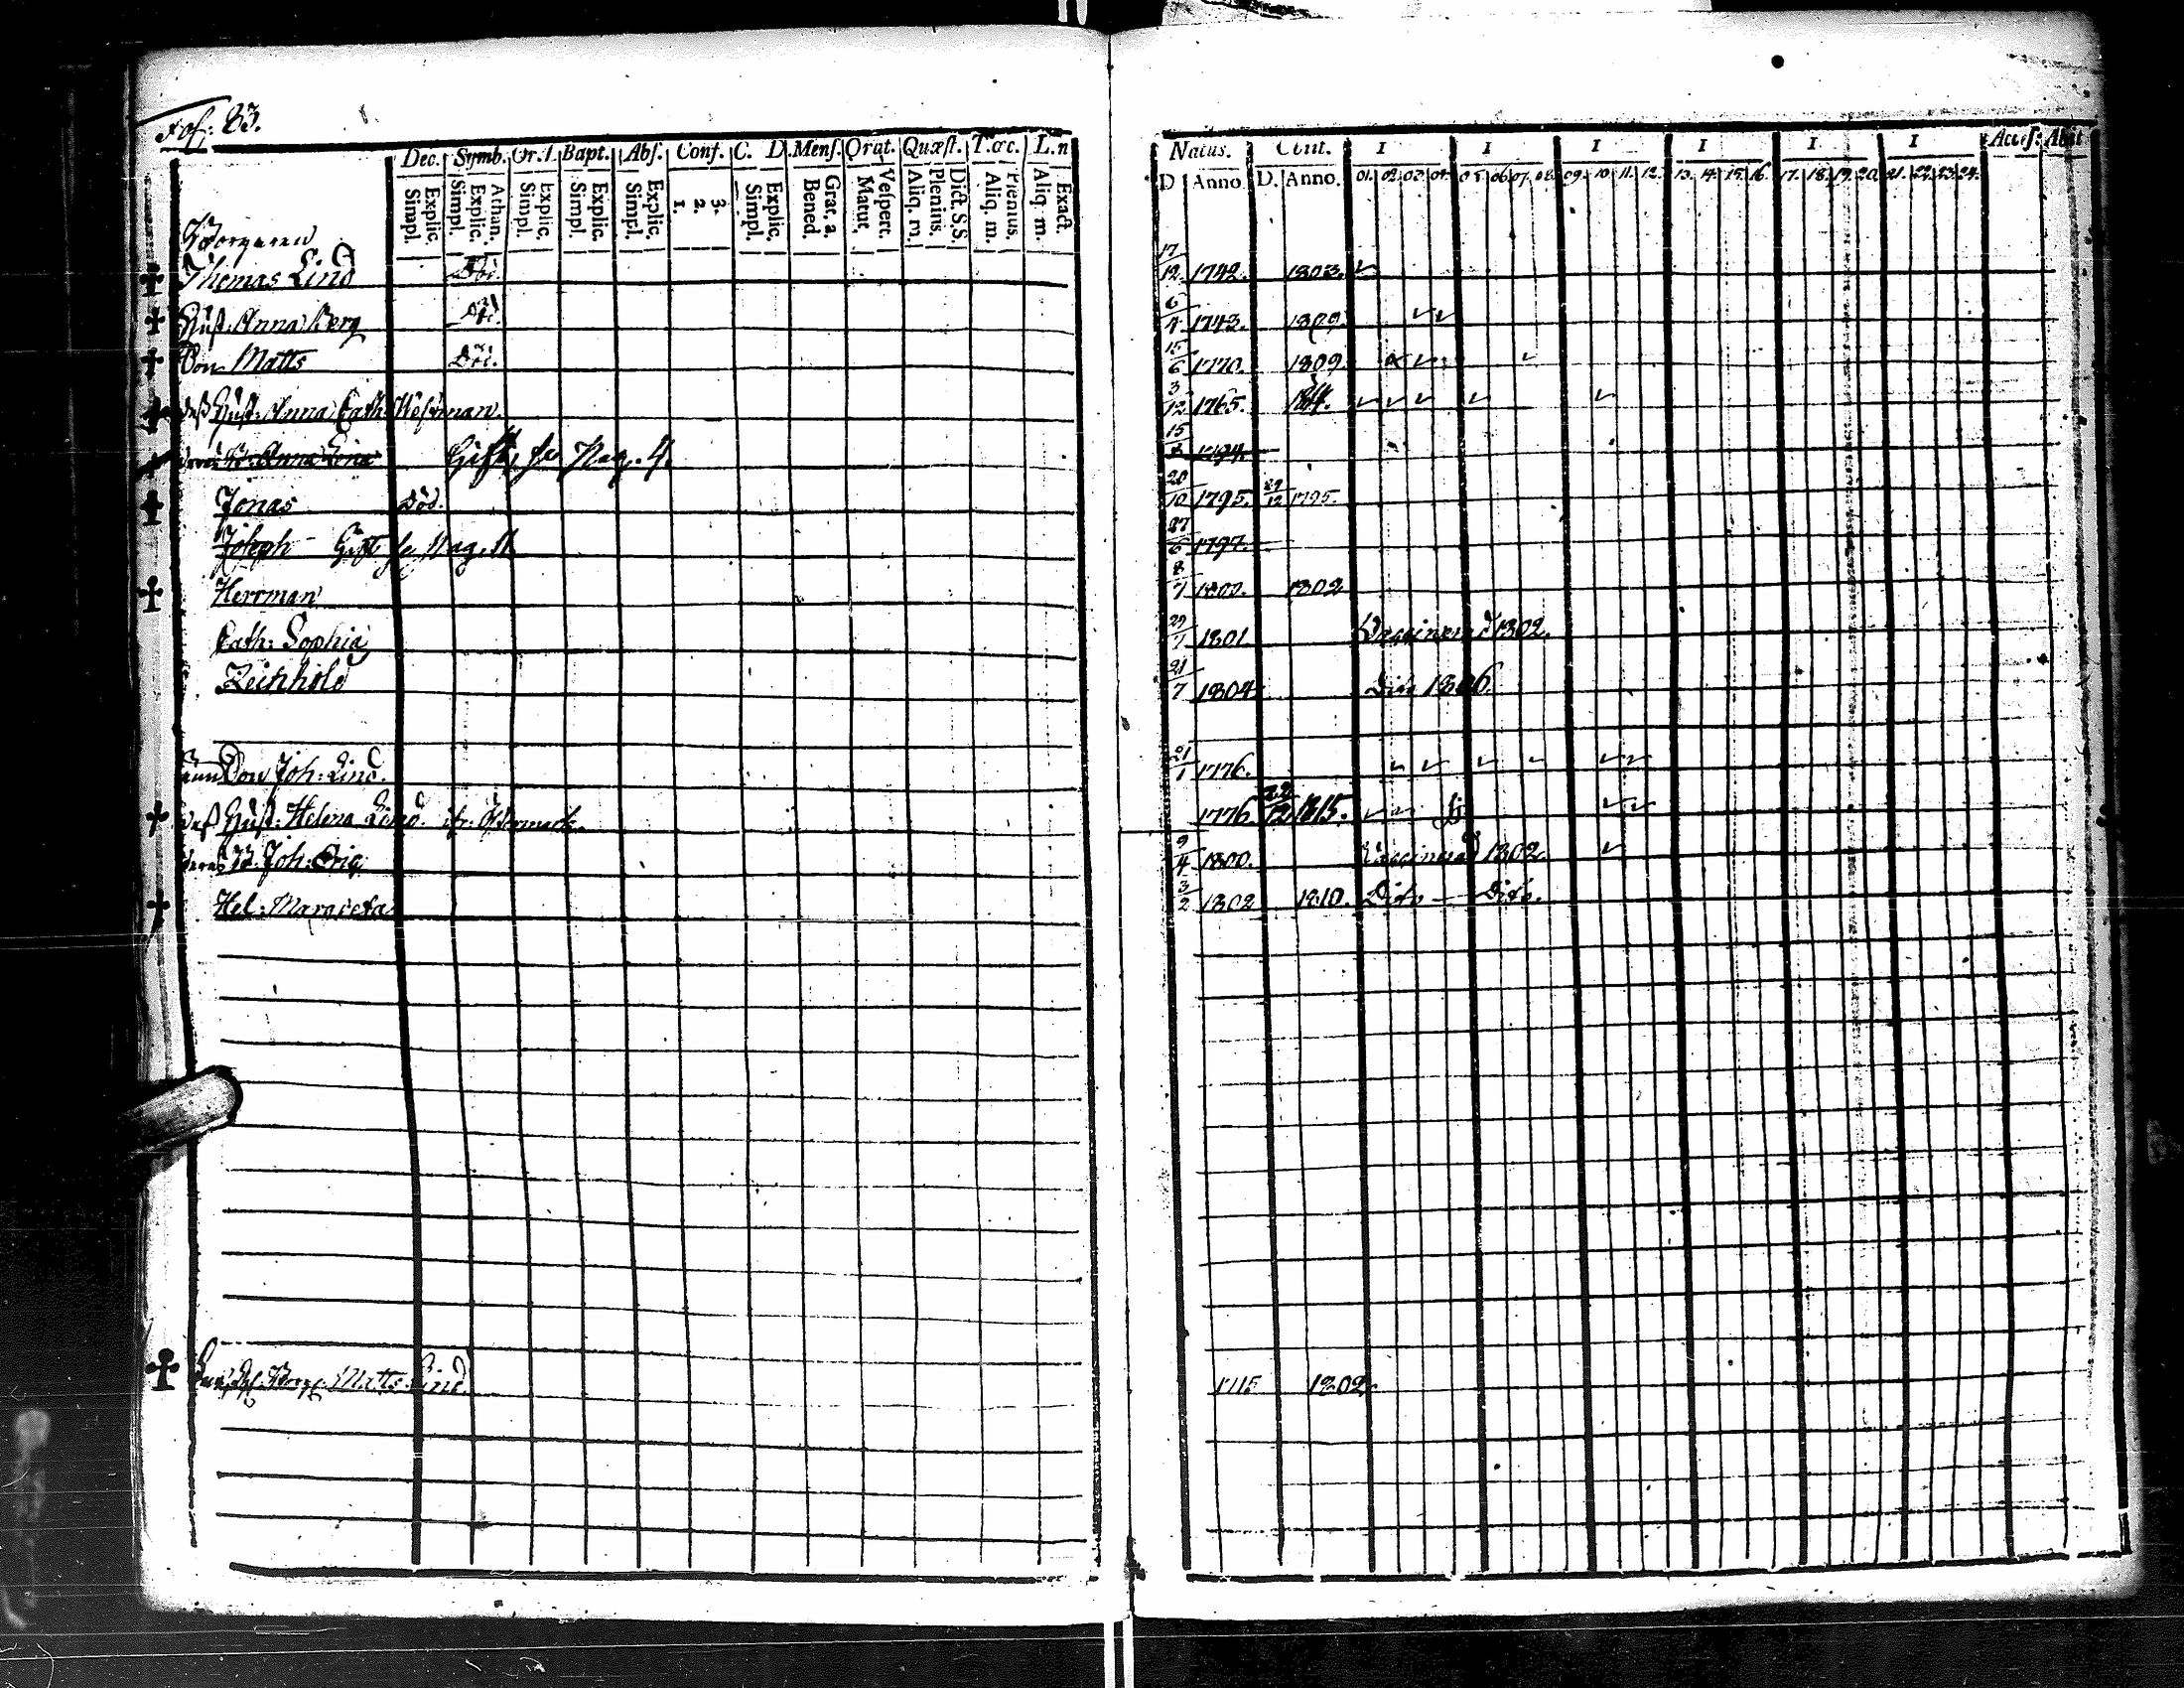 Fol: 83.
Dec. Symb. Or. 1. Bapt. Abs. Conf. C. D. Mens. Orat. Quæst. T. œc. L. n
Explic. Simpl. Athan. Explic. Simpl. Explic. Simpl. Explic. Simpl. Explic. Simpl. 3. 2. 1. Explic. Simpl. Grat. a. Bened. Vespert. Matut. Dict. S.S. Plenius. Aliq. m. Plenius. Aliq. m. Exact. Aliq. m.
Natus. Obiit. 1 1 1 1 1 1 Acces: Abiit
D Anno. D. Anno. 01. 02. 03. 04. 05. 06. 07. 08. 09. 10. 11. 12. 13. 14. 15. 16. 17. 18. 19. 20. 21. 22. 23. 24.
Borgaren
Thomas Lind 17/12 1742. 1803.
Hust. Anna Berg 6/4 1743. 1809.
Son Matts 15/6 1770. 1809.
deß Hust: Anna Cath: Westman 3/12 1765.
Anna Lina Gift, se Pag. 4. 15/8 1794.
Jonas Död. 20/10 1795. 29/12 1795.
Joseph Gift se Pag. 11 27/6 1797.
Herrman 8/7 1800. 1802
Cath: Sophia 29/7 1801. Vaccinerad 1802.
Zeithhold 21/7 1804 Dito 1806
Son Joh: Lind. 21/1 1776.
deß Hust: Helena Lind. 1776. 22/12 1815.
deras B. Joh: Eric 9/4 1800. Vaccinerad 1802.
Hel: Margreta 3/2 1802 1810. Dito — Dito.
Matts Lind. 1715 1802